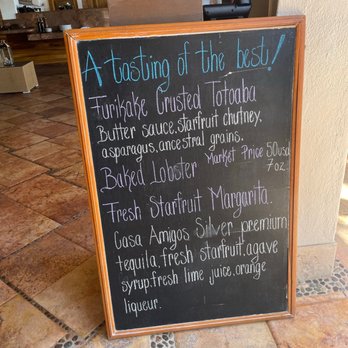 A tasting of the best!
Furikake Crusted Totoaba
Butter sauce, starfruit chutney,
asparagus, ancestral grains.
Baked Lobster Market Price 50usd
7oz
Fresh Starfruit Margarita.
Casa Amigos Silver premium
tequila, fresh starfruit, agave
syrup, fresh lime juice, orange
liqueur.